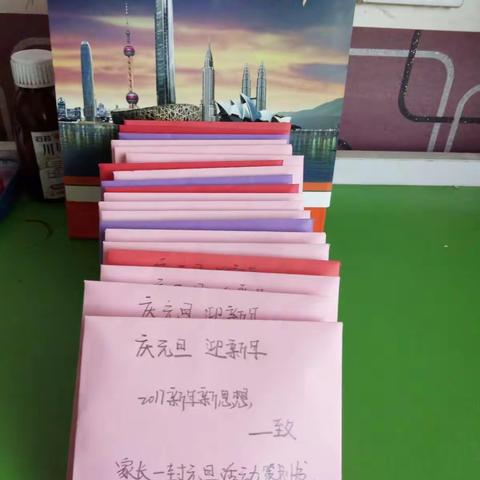 庆元旦 迎新年
庆元旦 迎新年
2017新年新思想
一致
家长一封元旦活动策划书